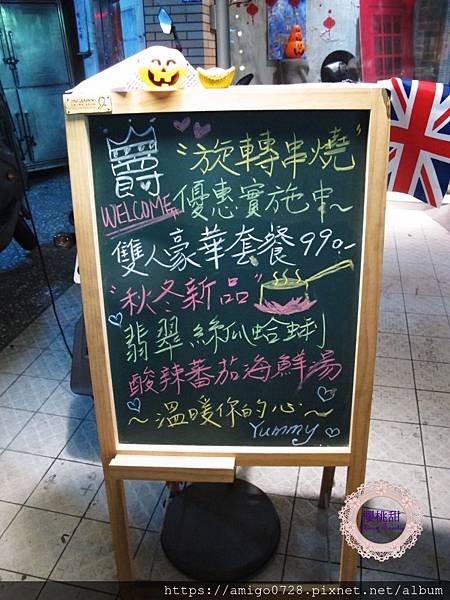 爵
WELCOME
"旋轉串燒"
優惠實施中~
雙人豪華套餐990.-
"秋冬新品"
翡翠絲瓜蛤蜊
酸辣蕃茄海鮮湯
~溫暖你的心~
Yummy
櫻桃甜
https://amigo0728.pixnet.net/album